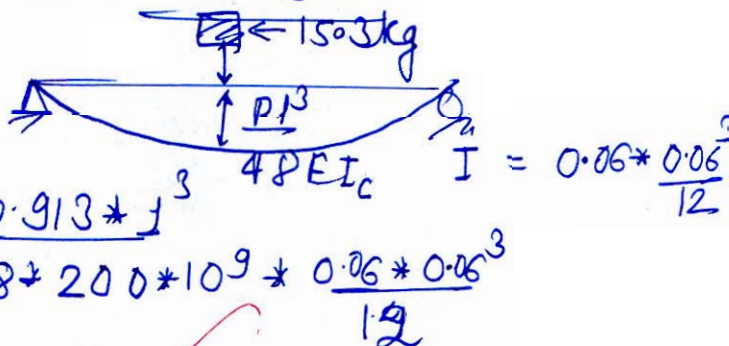 ← 150.3kg
Pl³
48EI_c
I = 0.06*0.06³
12
0.913*1³
8*200*10⁹*0.06*0.06³
12